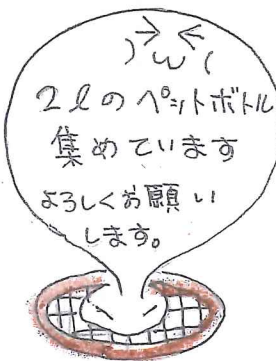 2ℓのペットボトル
集めています
よろしくお願い
します。